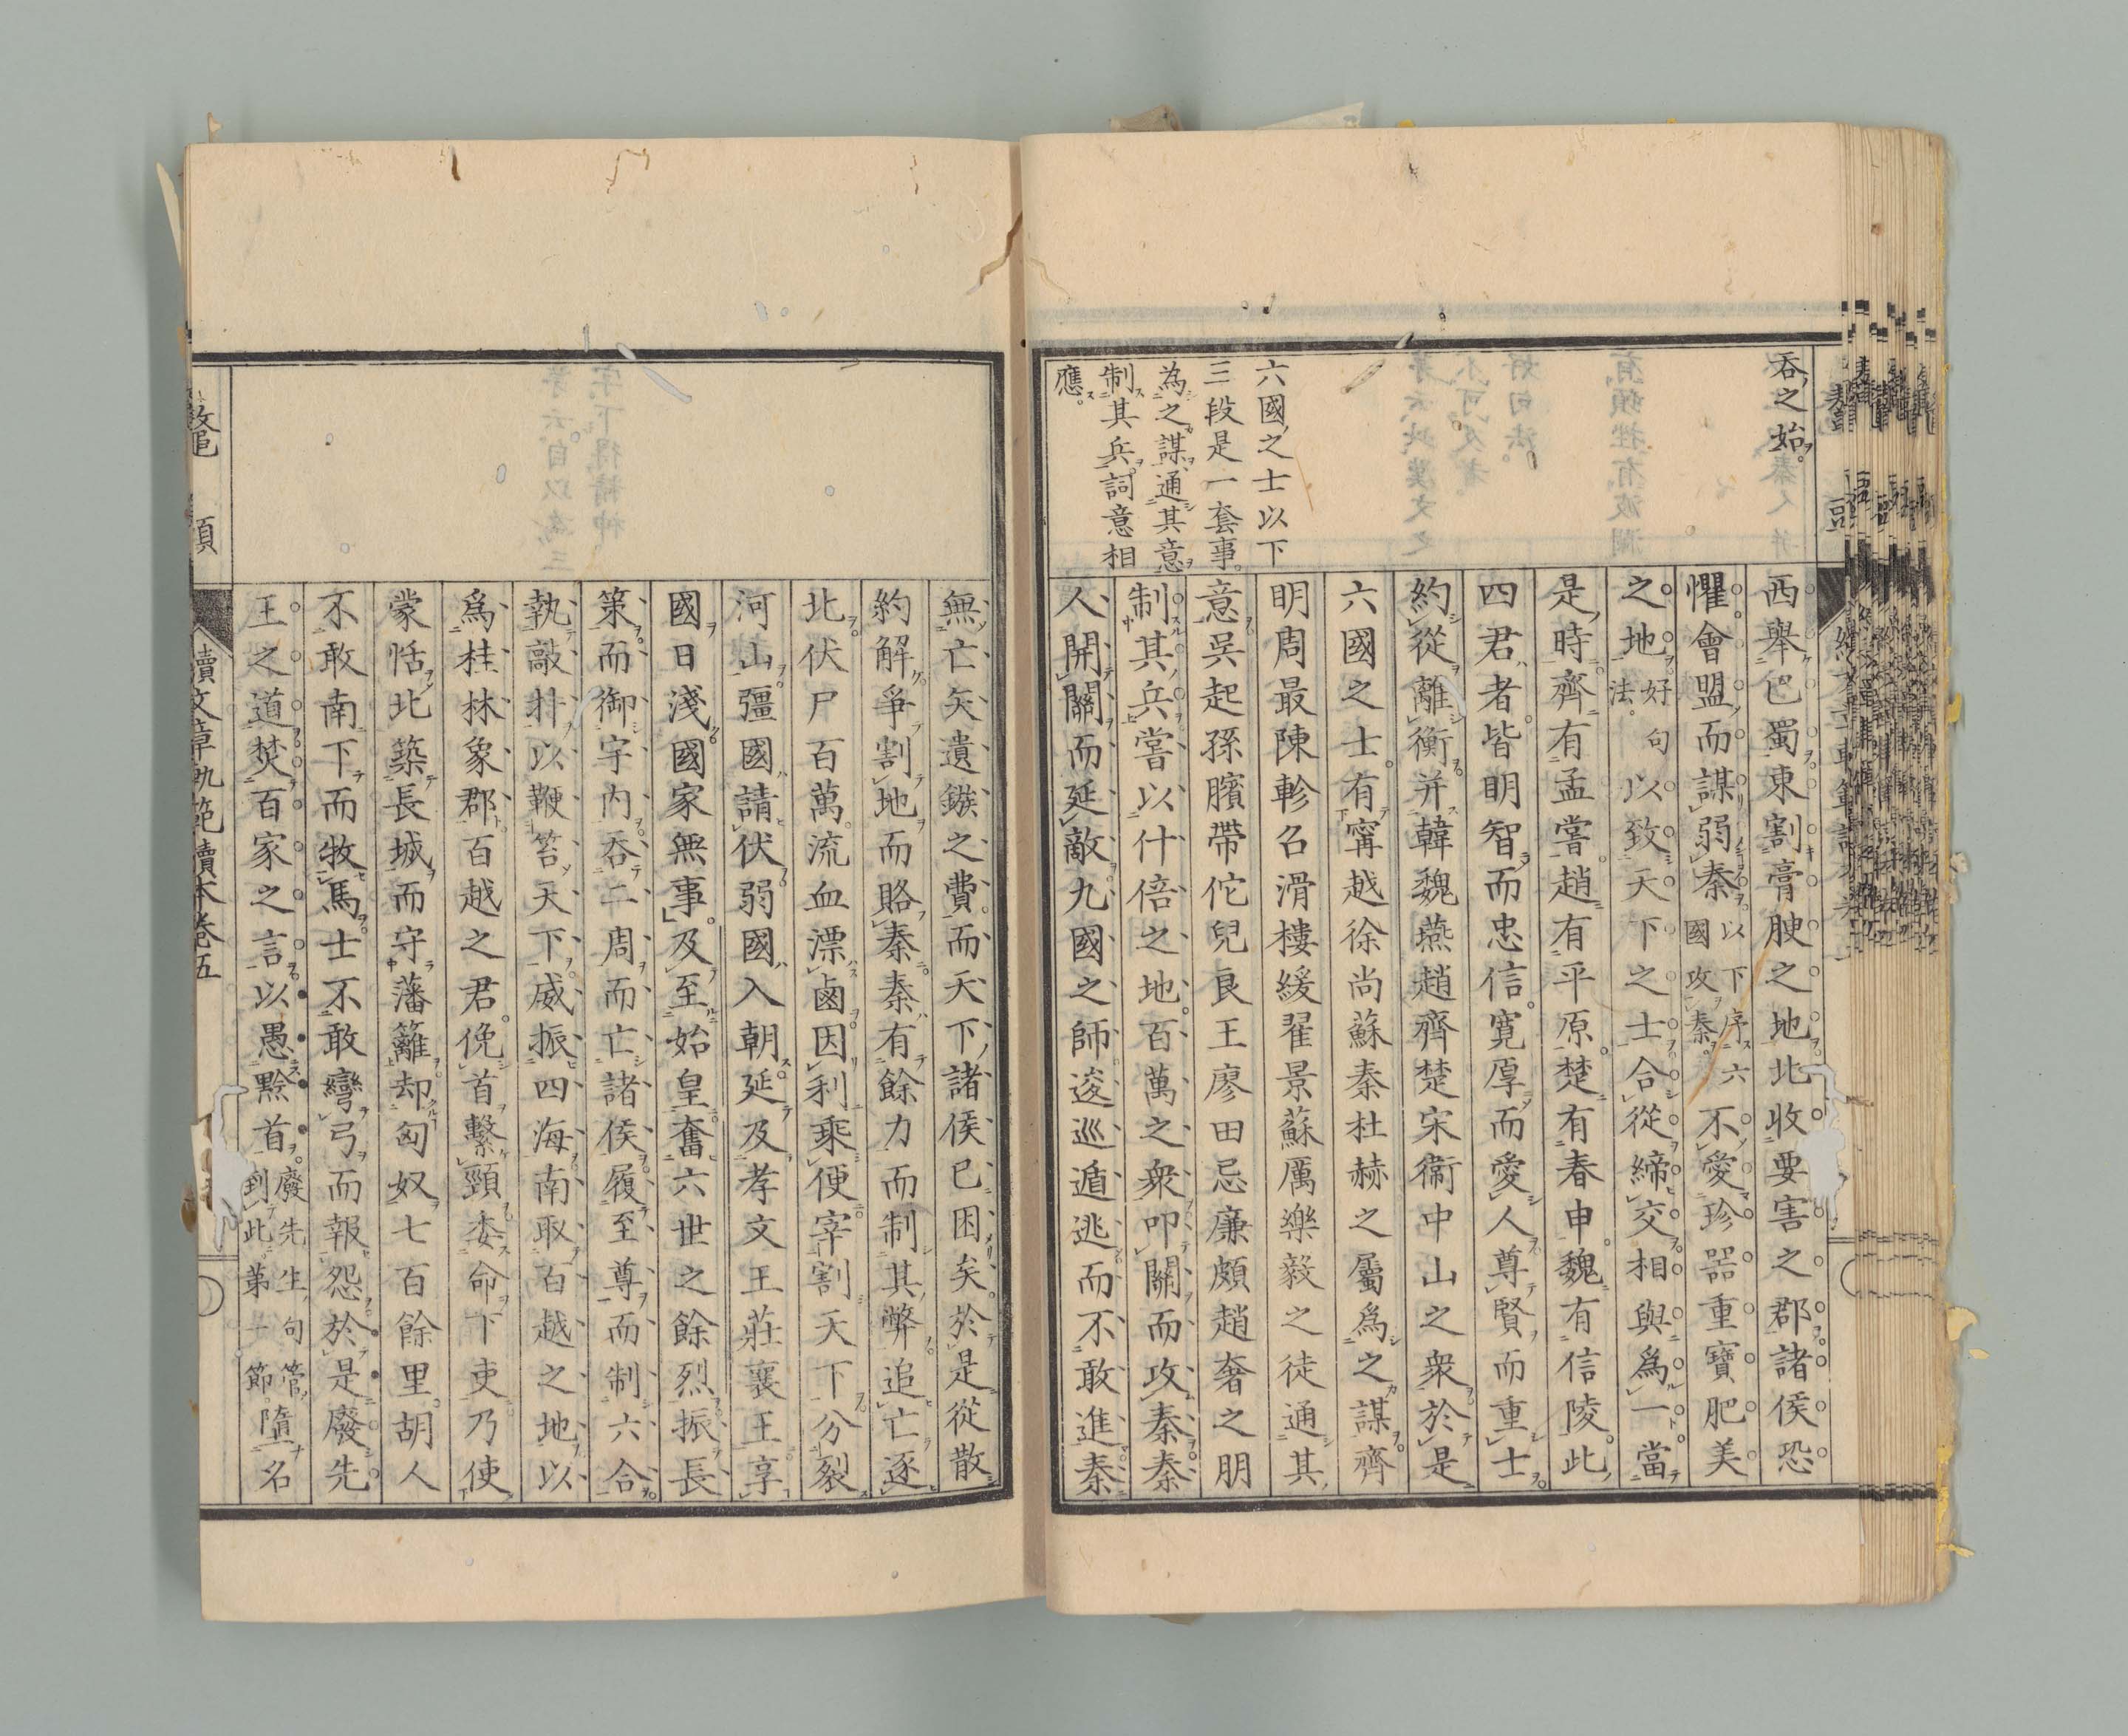 吞之始。
六國之士以下
三段是一套事。
為之謀通其意
制其兵詞意相
應。
西舉巴蜀東割膏腴之地北收要害之郡諸侯恐
懼會盟而謀弱秦 以下序六國攻秦 不愛珍器重寶肥美
之地 好句法。 以致天下之士合從締交相與爲一當
是時齊有孟嘗趙有平原楚有春申魏有信陵此
四君者皆明智而忠信寬厚而愛人尊賢而重士
約從離衡并韓魏燕趙齊楚宋衞中山之衆於是
六國之士有甯越徐尚蘇秦杜赫之屬爲之謀齊
明周最陳軫召滑樓緩翟景蘇厲樂毅之徒通其
意吳起孫臏帶佗兒良王廖田忌廉頗趙奢之朋
制其兵嘗以什倍之地百萬之衆叩關而攻秦秦
人開關而延敵九國之師逡巡遁逃而不敢進秦
無亡矢遺鏃之費而天下諸侯已困矣於是從散
約解爭割地而賂秦秦有餘力而制其弊追亡逐
北伏尸百萬流血漂鹵因利乘便宰割天下分裂
河山彊國請伏弱國入朝延及孝文王莊襄王享
國日淺國家無事及至始皇奮六世之餘烈振長
策而御宇內吞二周而亡諸侯履至尊而制六合
執敲朴以鞭笞天下威振四海南取百越之地以
爲桂林象郡百越之君俛首繫頸委命下吏乃使
蒙恬北築長城而守藩籬却匈奴七百餘里胡人
不敢南下而牧馬士不敢彎弓而報怨於是廢先
王之道焚百家之言以愚黔首 廢先生句管到此第一節 墮名
續文章軌範讀本卷五